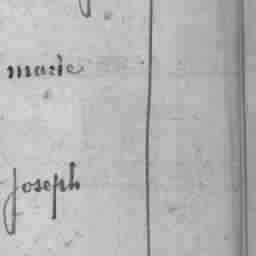 marie
Joseph